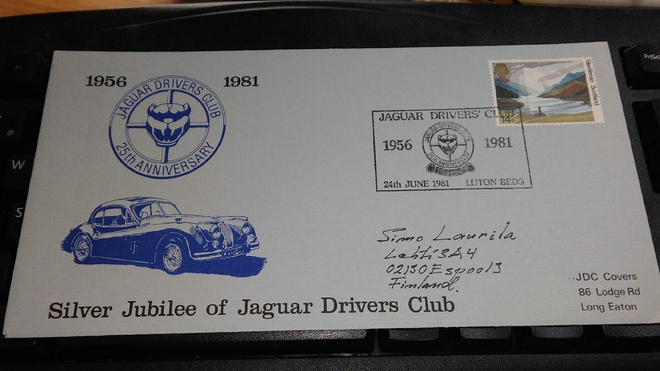 1956 1981
JAGUAR DRIVERS CLUB
25th ANNIVERSARY
Glenfinnan Scotland
14P
JAGUAR DRIVERS' CLUB
1956 1981
24th JUNE 1981 LUTON BEDS
Simo Laurila
Lehti3A4
02130 Espoo 13
Finland.
JDC Covers
86 Lodge Rd
Long Eaton
Silver Jubilee of Jaguar Drivers Club
W
S